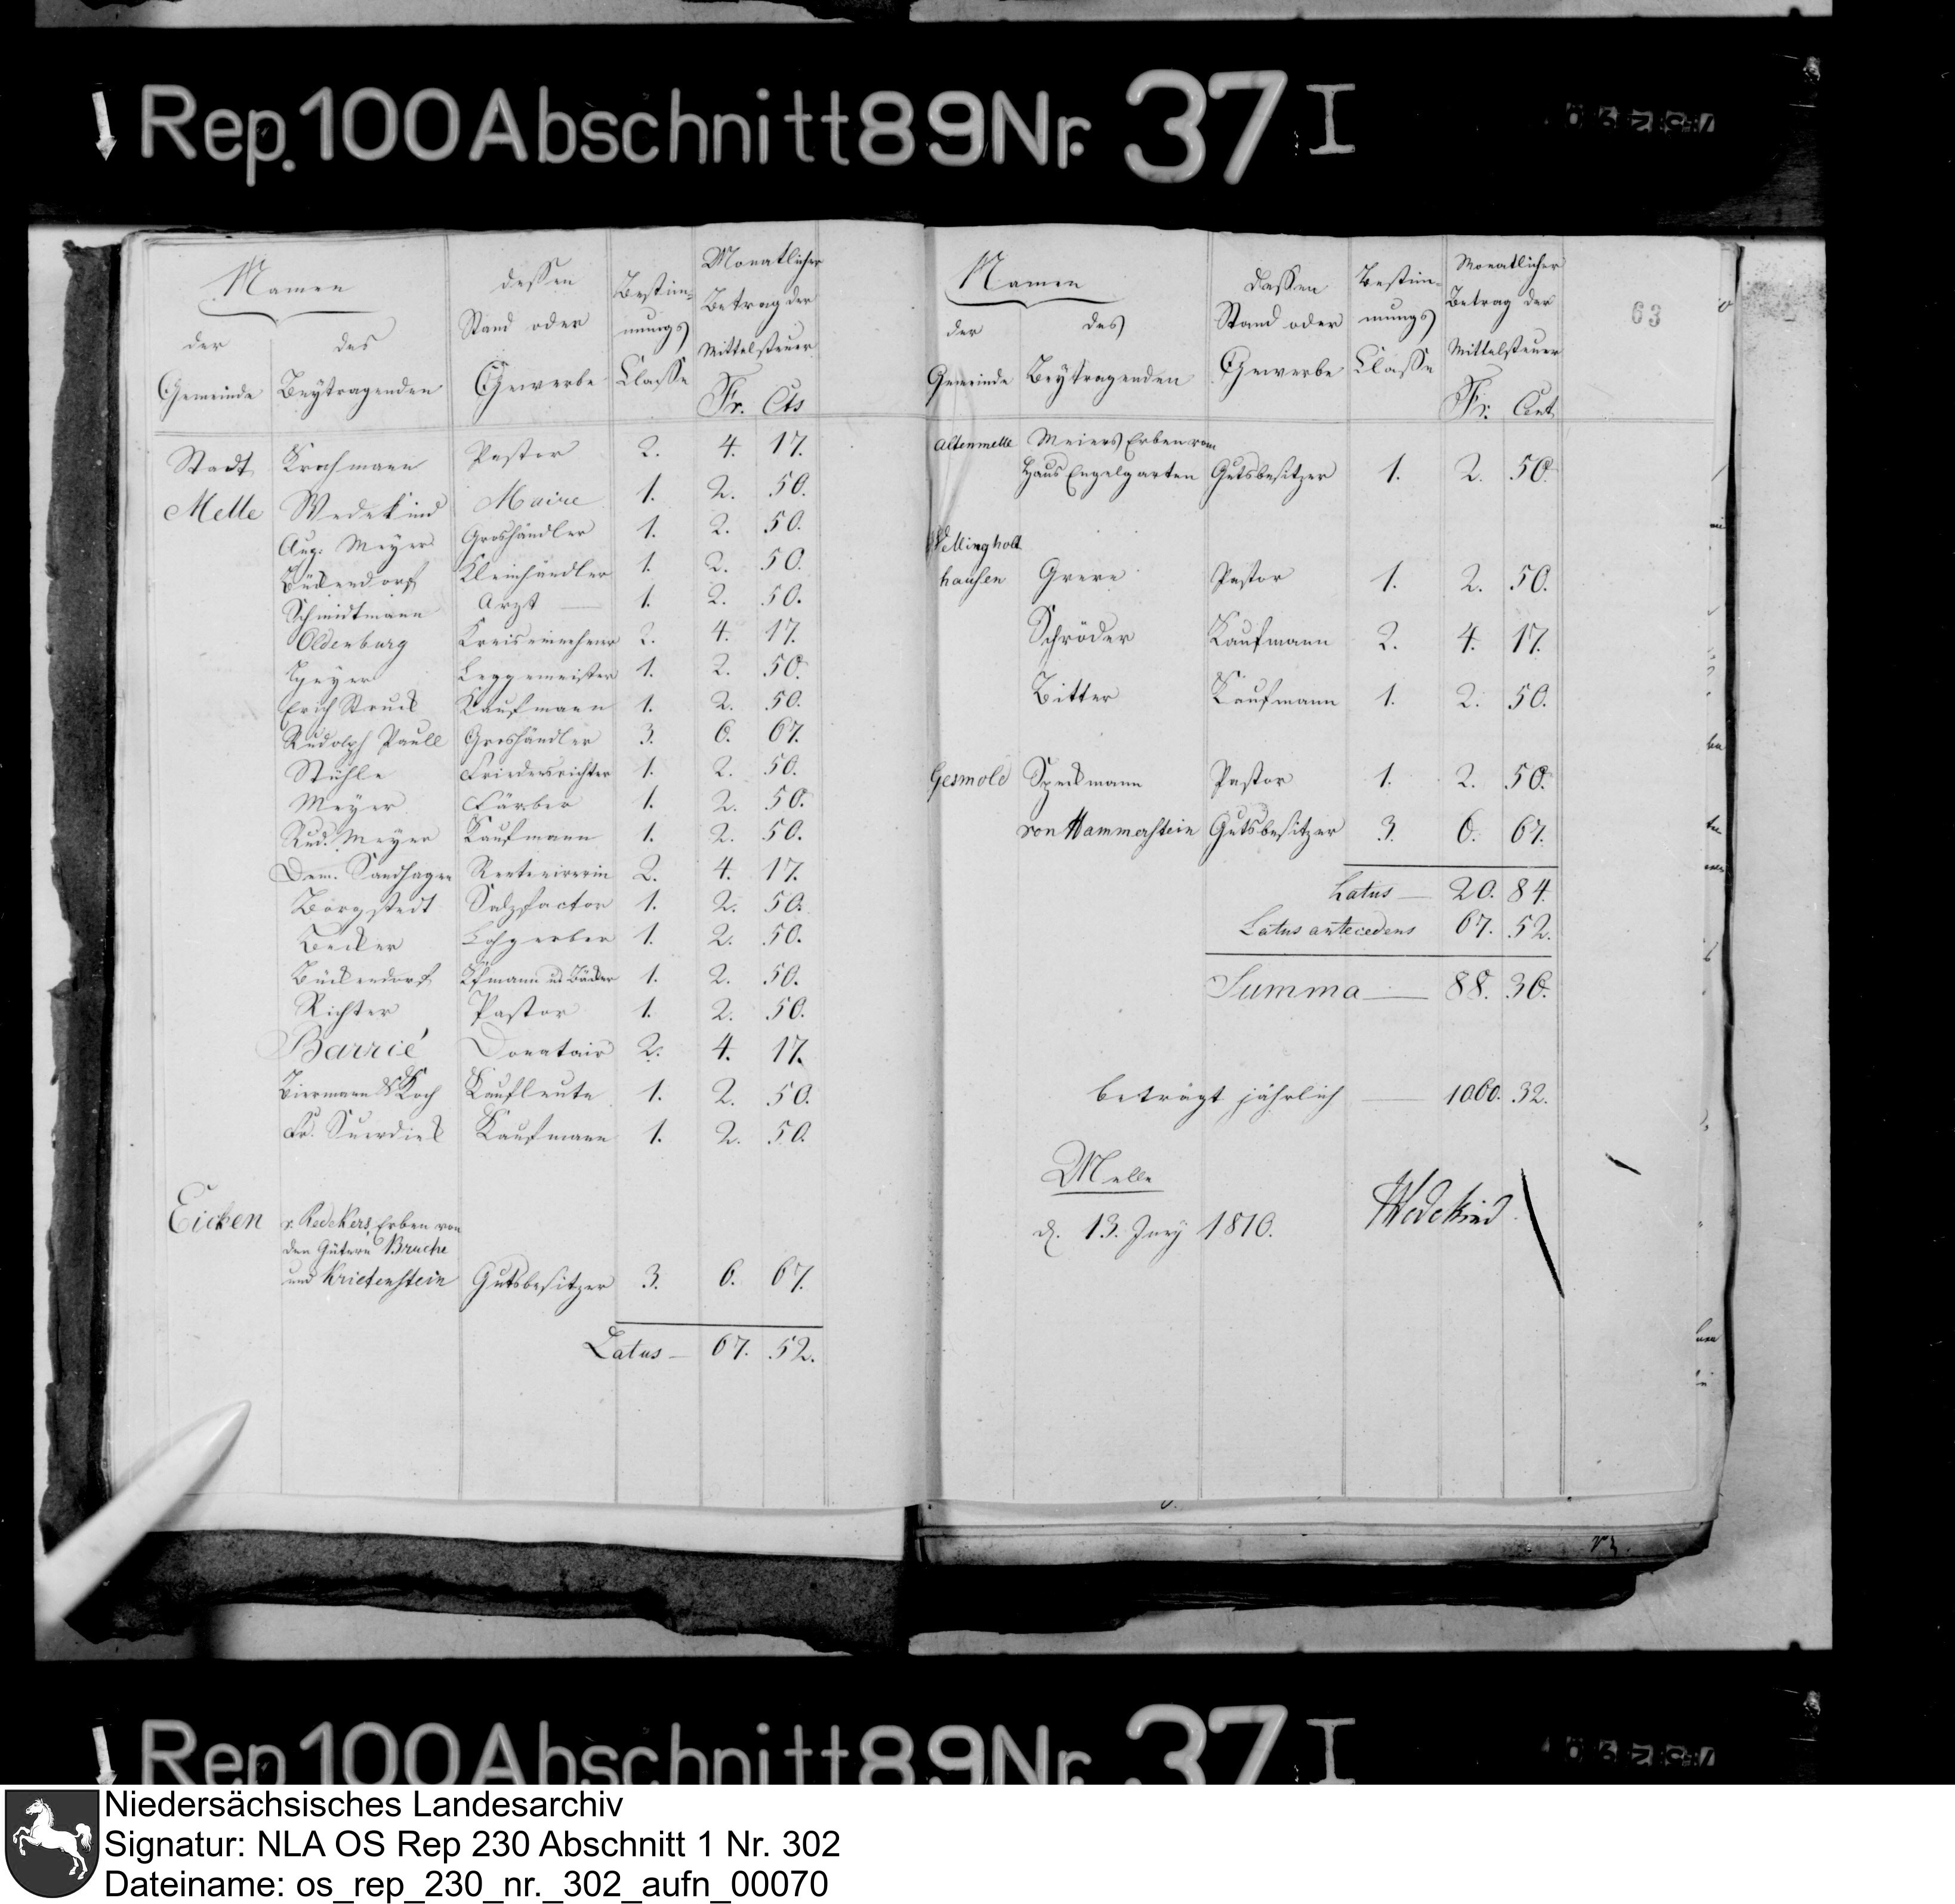 Rep. 100 Abschnitt 89 Nr. 37 I
Namen
der Gemeinde
des Beytragenden
dessen Stand oder Gewerbe
Bestim=
mungs
Classe
Monatlicher
Betrag der
Mittelsteuer
Fr. Cts
Stadt Krochmann Pastor 2. 4. 17.
Melle Wedekind Maire 1. 2. 50.
Aug. Meyer Groshändler 1. 2. 50.
Bückendorf Kleinhändler 1. 2. 50.
Schmidtmann Arzt — 1. 2. 50.
Oldenburg Kreiseinnehmer 2. 4. 17.
Heyer Leggemeister 1. 2. 50.
Erich Struck Kaufmann 1. 2. 50.
Rudolph Paull Groshändler 3. 6. 67.
Stühle Friedensrichter 1. 2. 50.
Meyer Färber 1. 2. 50.
Rud. Meyer Kaufmann 1. 2. 50.
Dem. Sandhagen Rentenirerin 2. 4. 17.
Borgstedt Salzfactor 1. 2. 50.
Becker Lohgerber 1. 2. 50.
Bückendorf Kfmann u Bäcker 1. 2. 50.
Richter Pastor 1. 2. 50.
Barrié Donatair 2. 4. 17.
Biermann & Koch Kaufleute 1. 2. 50.
Fr. Suerdiek Kaufmann 1. 2. 50.
Eicken v. Redekers Erben von
den Gütern Bruche
und Krietenstein Gutsbesitzer 3. 6. 67.
Latus — 67. 52.
Namen
der Gemeinde
des Beytragenden
dessen Stand oder Gewerbe
Bestim=
mungs
Classe
Monatlicher
Betrag der
Mittelsteuer
Fr. Cent
63
Altenmelle Meiers Erben vom
Haus Engelgarten Gutsbesitzer 1. 2. 50.
Wellingholt
hausen Greve Pastor 1. 2. 50.
Schröder Kaufmann 2. 4. 17.
Bitter Kaufmann 1. 2. 50.
Gesmold Speckmann Pastor 1. 2. 50.
von Hammerstein Gutsbesitzer 3. 6. 67.
Latus — 20. 84.
Latus antecedens 67. 52.
Summa — 88. 36.
beträgt jährlich — 1060. 32.
Melle
d. 13. Juny 1810.
Wedekind
Rep. 100 Abschnitt 89 Nr. 37 I
Niedersächsisches Landesarchiv
Signatur: NLA OS Rep 230 Abschnitt 1 Nr. 302
Dateiname: os_rep_230_nr._302_aufn_00070